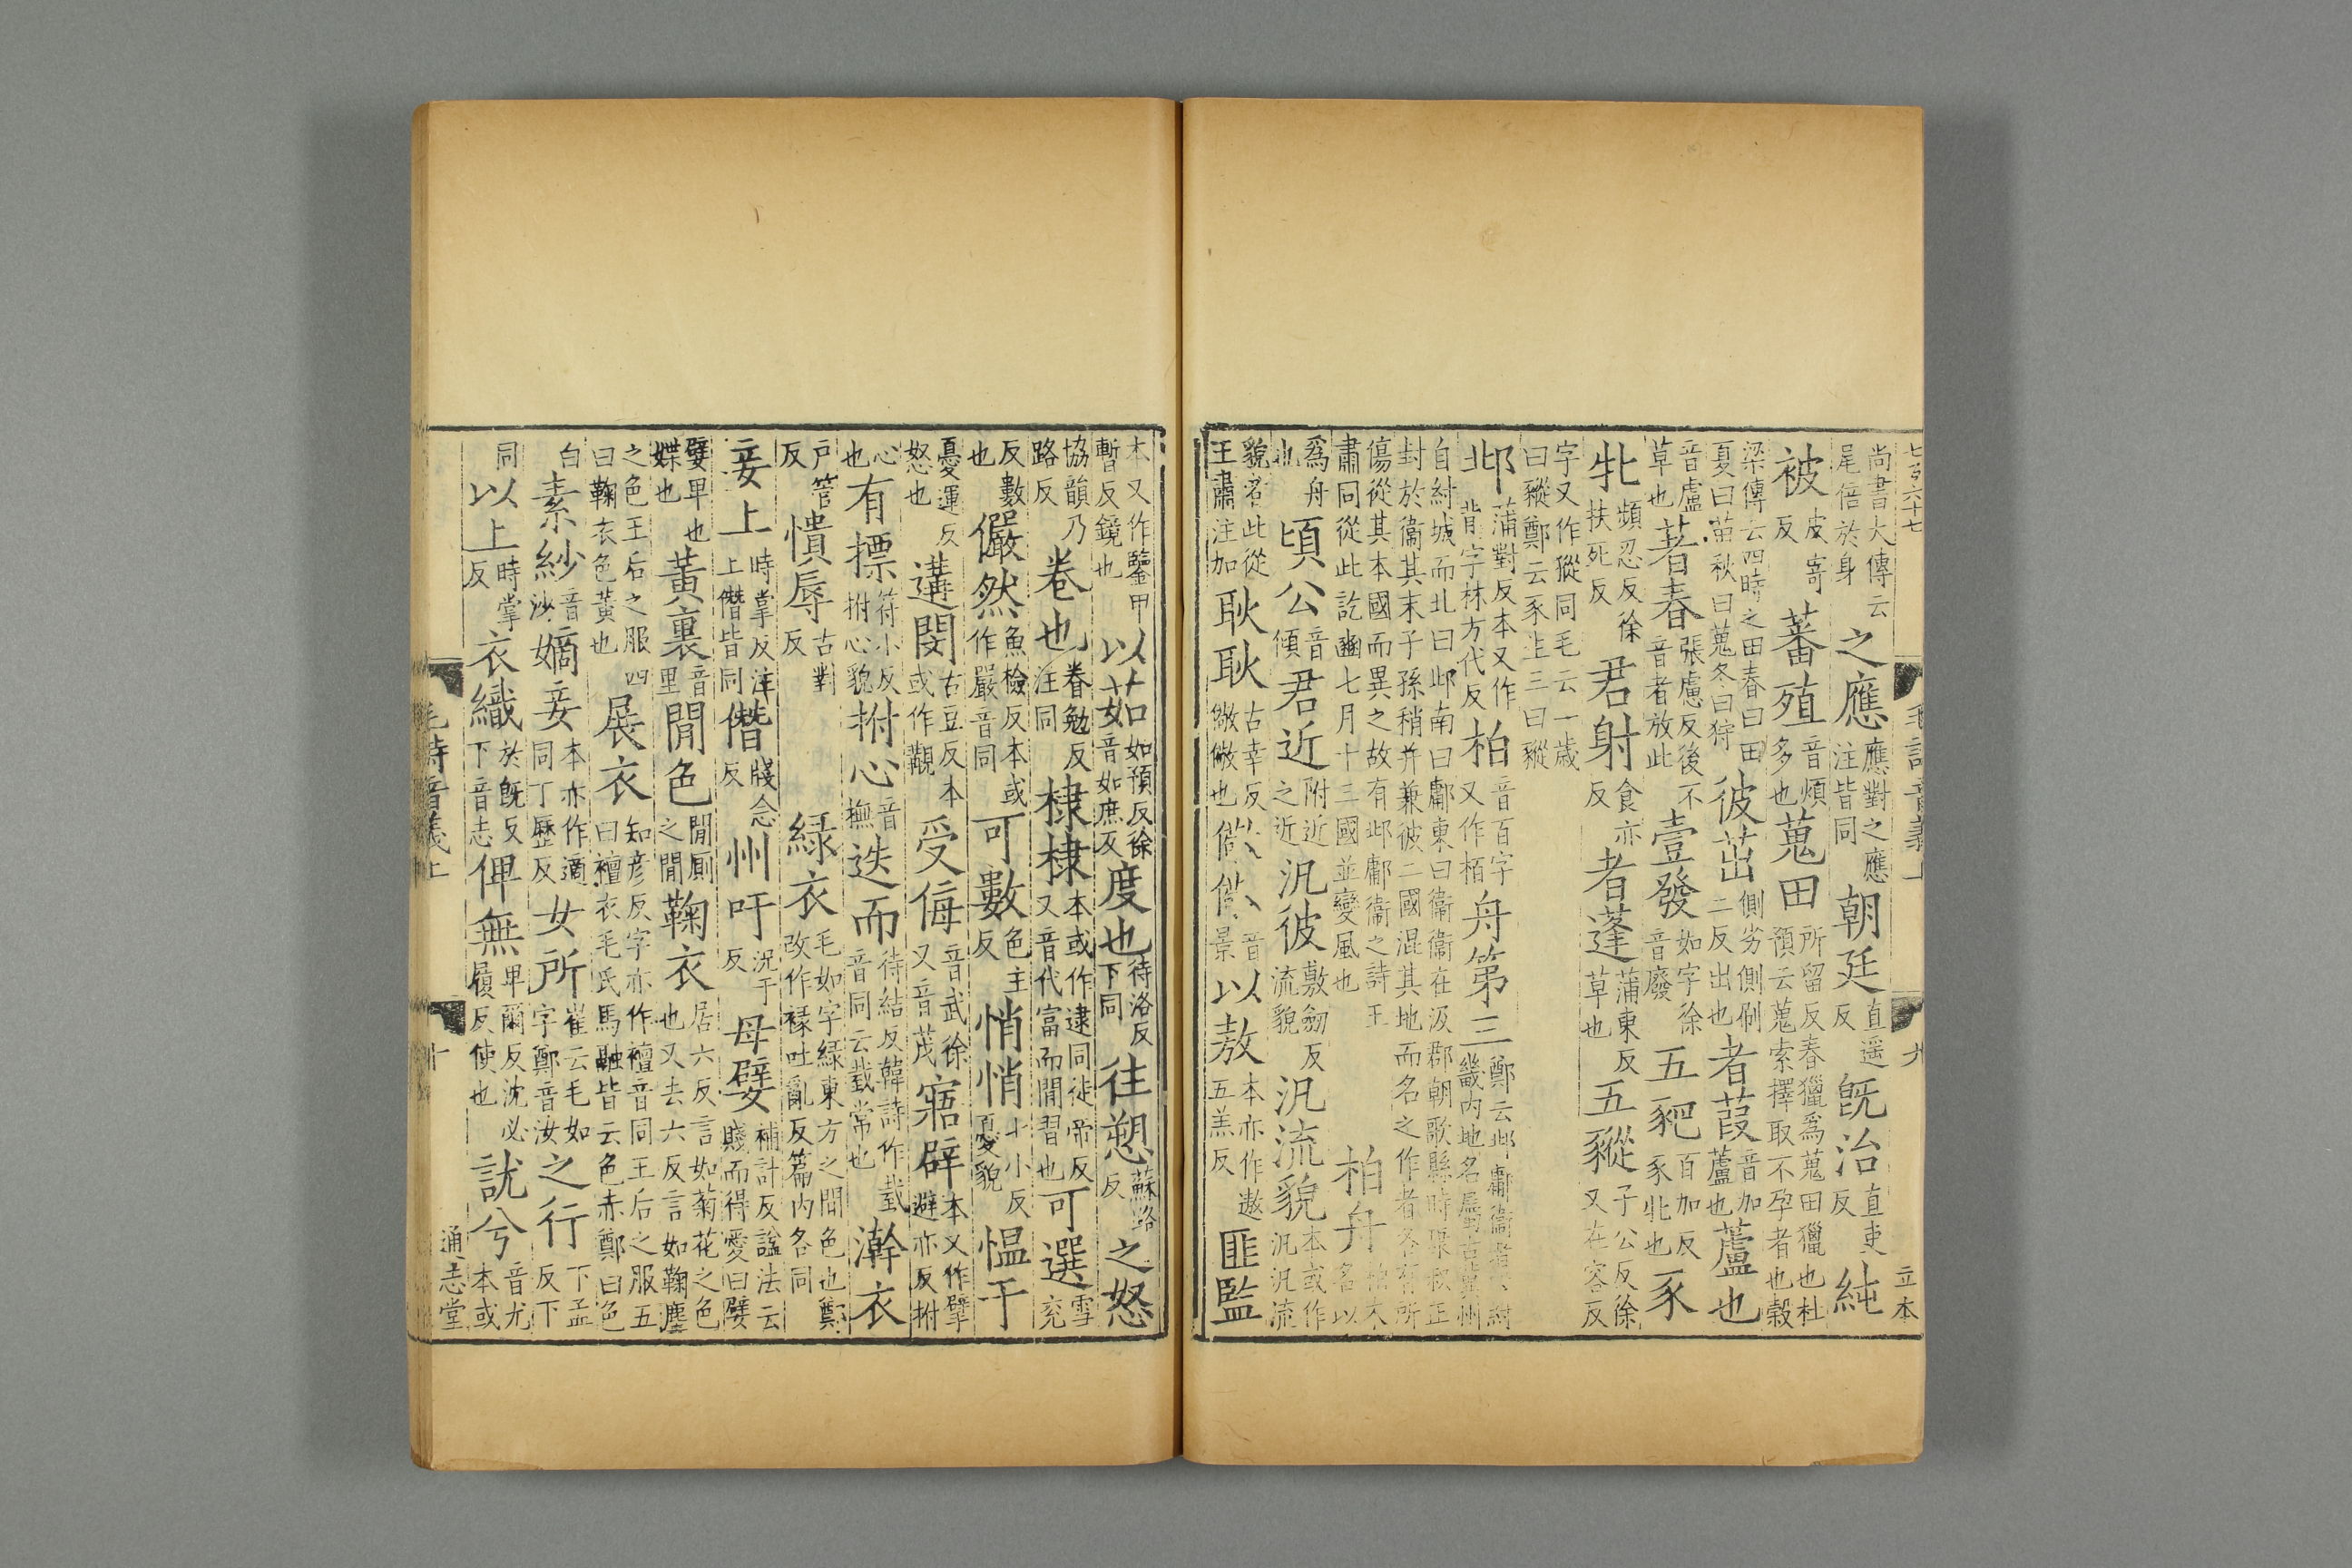 尚書大傳云尾倍於身之應應對之應注皆同朝廷直遥反既治直吏反純
被皮寄反蕃殖音煩多也蒐田所留反春獵爲蒐田獵也杜預云蒐索擇取不孕者也穀
梁傳云四時之田春曰田夏曰苗秋曰蒐冬曰狩彼茁側劣側刷二反出也者葭音加蘆也蘆也
音盧草也著春張慮反後不音者放此壹發如字徐音廢五豝百加反豕牝也豕
牝頻忍反徐扶死反君射食亦反者蓬蒲東反草也五豵子公反徐又在容反
字又作豵同毛云一歲曰豵鄭云豕生三曰豵
邶蒲對反本又作背字林方代反柏音百字又作栢舟第三鄭云邶鄘衞者紂畿内地名屬古冀州
自紂城而北曰邶南曰鄘東曰衞衞在汲郡朝歌縣時康叔正封於衞其末子孫稍并兼彼二國混其地而名之作者各有所
傷從其本國而異之故有邶鄘衞之詩王肅同從此訖豳七月十三國並變風也柏舟柏木名以
爲舟也頃公音傾君近附近之近汎彼敷劒反流貌汎流貌本或作汎汎流
貌者此從王肅注加耿耿古幸反儆儆也儆儆音景以敖本亦作遨五羔反匪監
本又作鑒甲暫反鏡也以茹如預反徐音如庶反度也待洛反下同往愬蘇路反之怒
協韻乃路反卷也眷勉反注同棣棣本或作逮同徒帝反又音代富而閒習也可選雪兖
反數也儼然魚檢反本或作嚴音同可數色主反悄悄七小反憂貌慍于
憂運反怒也遘閔古豆反本或作覯受侮音武徐又音茂寤辟本又作擘避亦反拊
心也有摽符小反拊心貌拊心音撫迭而待結反韓詩作䟴音同云䟴常也澣衣
户管反憒辱古對反緑衣毛如字緑東方之間色也鄭改作褖吐亂反篇内各同
妾上時掌反注上僭皆同僭牋念反州吁況于反母嬖補計反謚法云賤而得愛曰嬖
嬖卑也媟也黃裏音里閒色閒厠之閒鞠衣居六反言如菊花之色也又去六反言如鞠塵
之色王后之服四曰鞠衣色黃也展衣知彦反字亦作襢音同王后之服五曰襢衣毛氏馬融皆云色赤鄭曰色
白素紗音沙嫡妾本亦作適同丁歷反女所崔云毛如字鄭音汝之行下孟反下
同以上時掌反衣織於既反下音志俾無卑爾反沈必履反使也訧兮音尤本或
毛詩音義上 九
毛詩音義上 十
通志堂